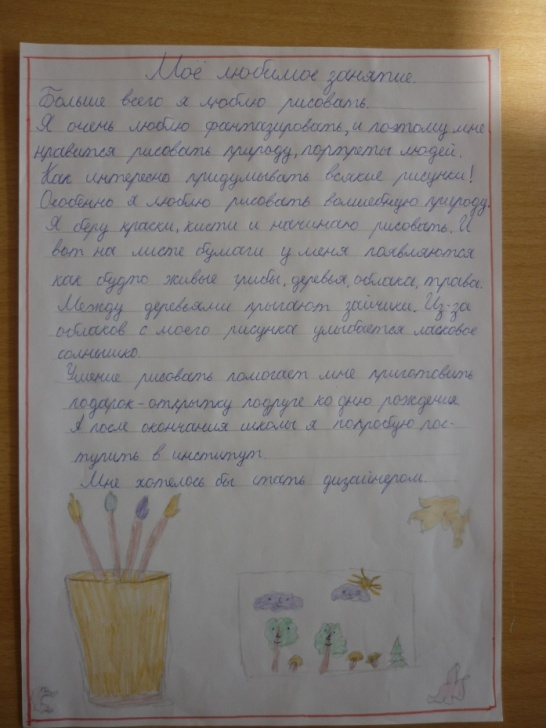 Моё любимое занятие.
Больше всего я люблю рисовать.
Я очень люблю фантазировать, и поэтому мне
нравится рисовать природу, портреты людей.
Как интересно придумывать всякие рисунки!
Особенно я люблю рисовать волшебную природу.
Я беру краски, кисти и начинаю рисовать. И
вот на листе бумаги у меня появляются
как будто живые грибы, деревья, облака, трава.
Между деревьями прыгают зайчики. Из-за
облаков с моего рисунка улыбается ласковое
солнышко.
Умение рисовать помогает мне приготовить
подарок-открытку подруге ко дню рождения
А после окончания школы я попробую пос-
тупить в институт.
Мне хотелось бы стать дизайнером.